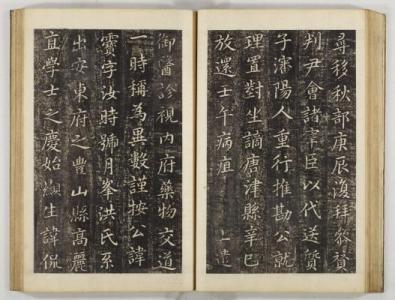 尋移秋部庚辰復拜參贊
判尹會諸宰臣以代送質
子瀋陽人重行推勘公就
理置對坐謫唐津縣辛巳
放還壬午病疽 上遣
御醫診視內府藥物交道
一時稱為異數謹按公諱
霙字汝時號月峯洪氏系
出安東府之豊山縣高麗
直學士之慶始顯生諱侃